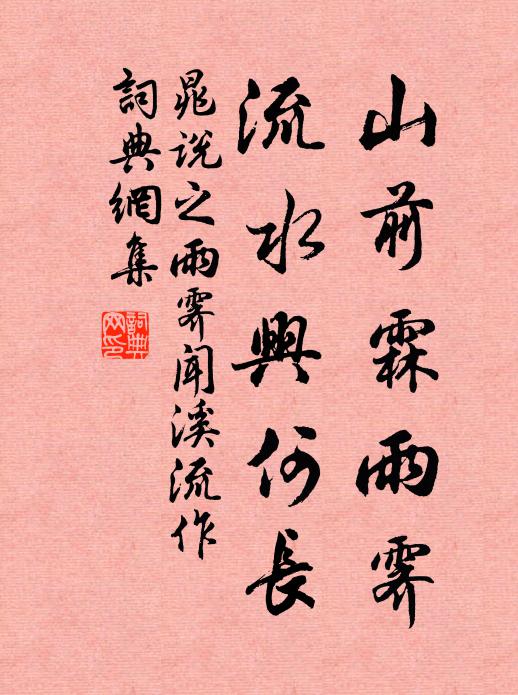 山前霖雨霁
流水興何長
晁说之雨霁闻溪流作
詞典網集
詞典網印